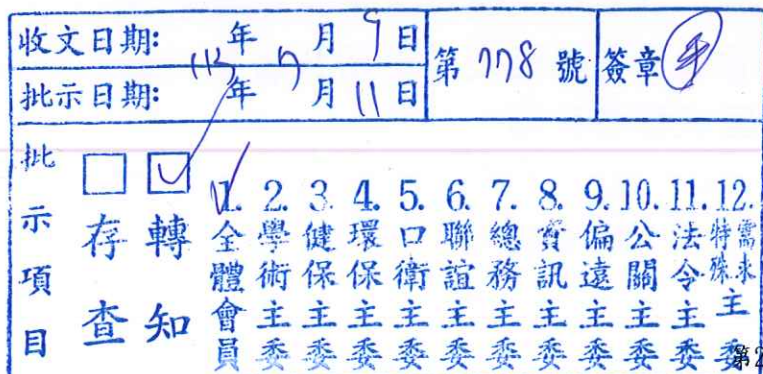 收文日期: 112年7月9日
批示日期: 年 月11日
第 778 號
簽章
批示項目
□ 存查
☑ 轉知
1. 全體會員
2. 學術主委
3. 健保主委
4. 環保主委
5. 口衛主委
6. 聯誼主委
7. 總務主委
8. 資訊主委
9. 偏遠主委
10. 公關主委
11. 法令主委
12. 特殊需求主委
第2